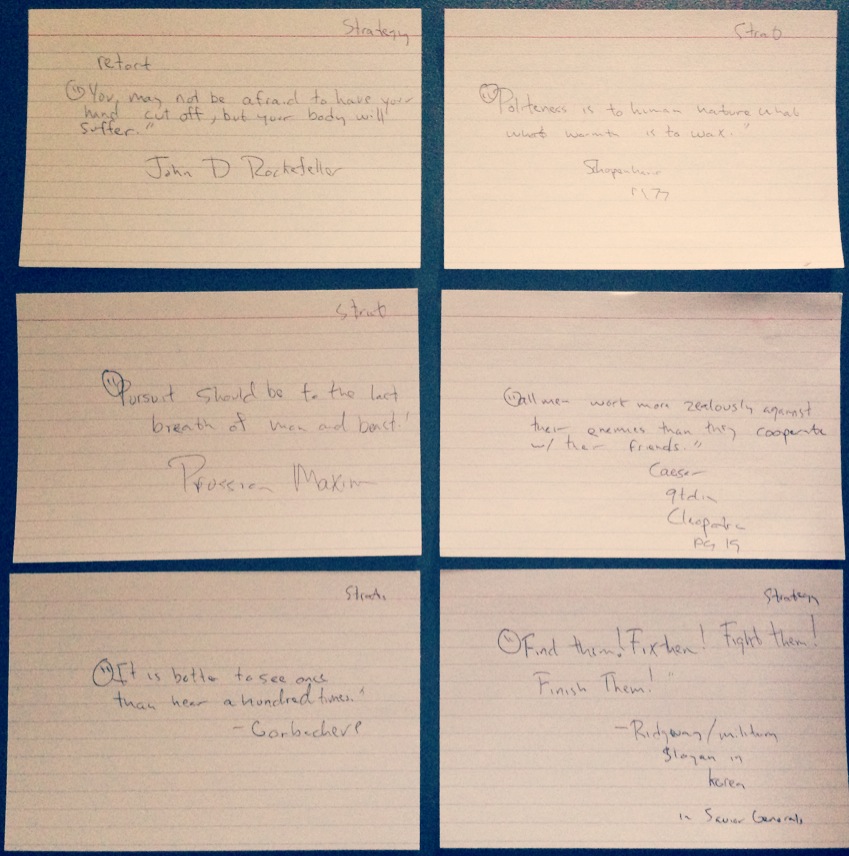 Strategy
retort
"You, may not be afraid to have your
hand cut off, but your body will
suffer."
John D Rockefeller
Strat
"Politeness is to human nature what
what warmth is to wax."
Schopenhauer
Strat
"Pursuit should be to the last
breath of man and beast."
Prussian Maxim
"all men work more zealously against
their enemies than they cooperate
w/ their friends."
Caesar
qtd in
Cleopatra
pg 19
"It is better to see once
than hear a hundred times."
- Gorbachev
Strategy
"Find them! Fix them! Fight them!
Finish Them!"
- Ridgway/military
slogan in
Korea
in Savior Generals